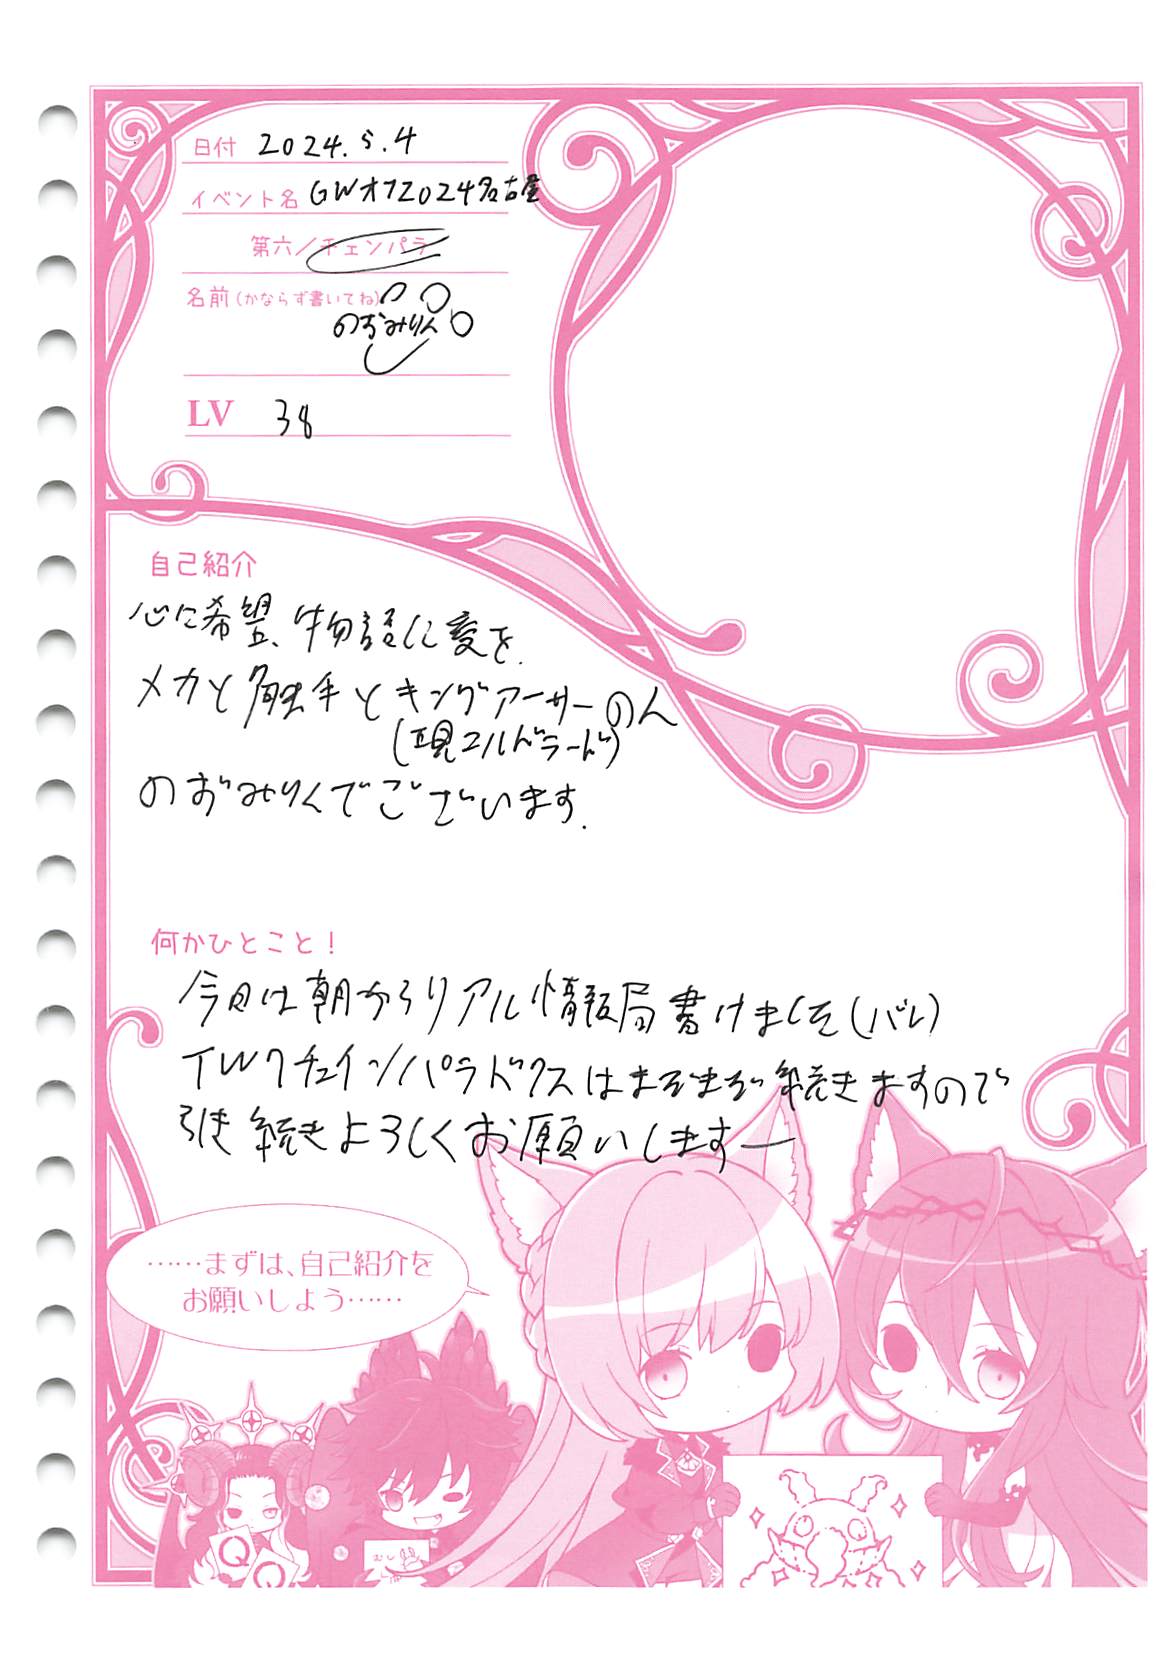 日付 2024.5.4
イベント名 GWオフ2024名古屋
第六／チェンパラ
名前(かならず書いてね)
のおみりん
LV 38
自己紹介
心に希望、物語に愛を.
メカと触手とキングアーサーのん
(現エルドラード)
のおみりんでございます.
何かひとこと！
今日は朝からリアル情報局書けました(バレ)
TW7チェインパラドクスはまだまだ続きますので
引き続きよろしくお願いしますー
……まずは、自己紹介を
お願いしよう……
Q
Q
むし